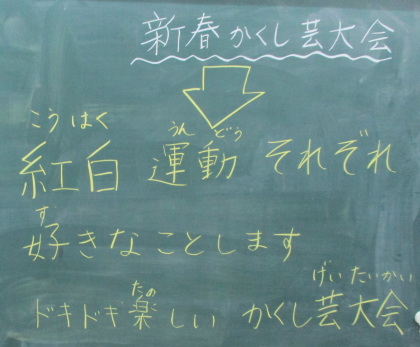 新春かくし芸大会
こうはく うんどう
紅白 運動 それぞれ
す
好きなことします
たの げいたいかい
ドキドキ楽しい かくし芸大会